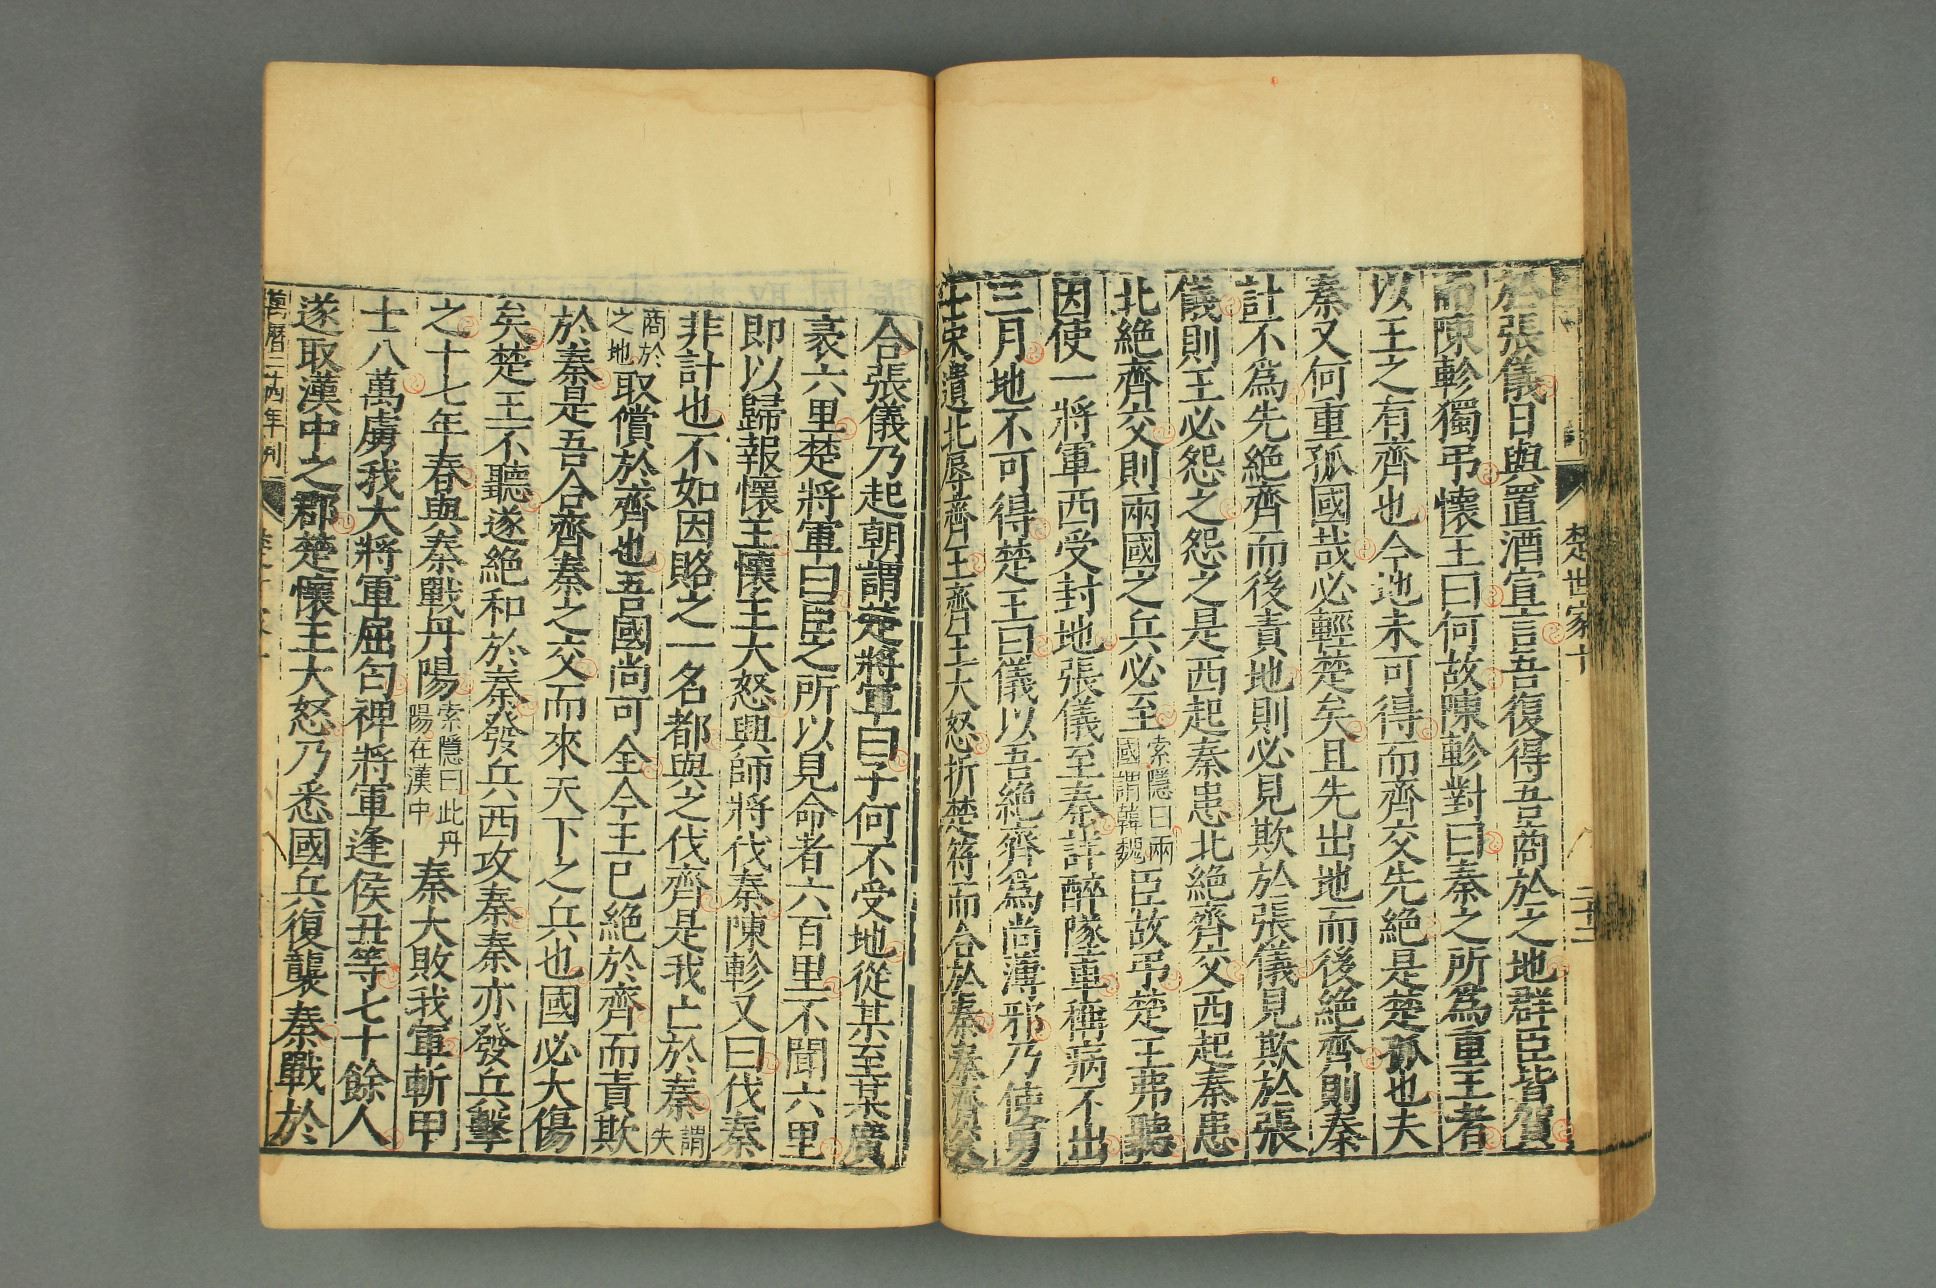 楚世家十
於張儀日與置酒宣言吾復得吾商於之地群臣皆賀
而陳軫獨弔懷王曰何故陳軫對曰秦之所爲重王者
以王之有齊也今地未可得而齊交先絶是楚孤也夫
秦又何重孤國哉必輕楚矣且先出地而後絶齊則秦
計不爲先絶齊而後責地則必見欺於張儀見欺於張
儀則王必怨之怨之是西起秦患北絶齊交西起秦患
北絶齊交則兩國之兵必至索隱曰兩國謂韓魏臣故弔楚王弗聽
因使一將軍西受封地張儀至秦詳醉隊車稱病不出
三月地不可得楚王曰儀以吾絶齊爲尚薄邪乃使勇
士宋遺北辱齊王齊王大怒折楚符而合於秦秦齊交
合張儀乃起朝謂楚將軍曰子何不受地從某至某廣
袤六里楚將軍曰臣之所以見命者六百里不聞六里
即以歸報懷王懷王大怒興師將伐秦陳軫又曰伐秦
非計也不如因賂之一名都與之伐齊是我亡於秦謂失
商於之地取償於齊也吾國尚可全今王已絶於齊而責欺
於秦是吾合齊秦之交而來天下之兵也國必大傷
矣楚王不聽遂絶和於秦發兵西攻秦秦亦發兵擊
之十七年春與秦戰丹陽索隱曰此丹陽在漢中秦大敗我軍斬甲
士八萬虜我大將軍屈匄裨將軍逢侯丑等七十餘人
遂取漢中之郡楚懷王大怒乃悉國兵復襲秦戰於
萬曆二十四年刊